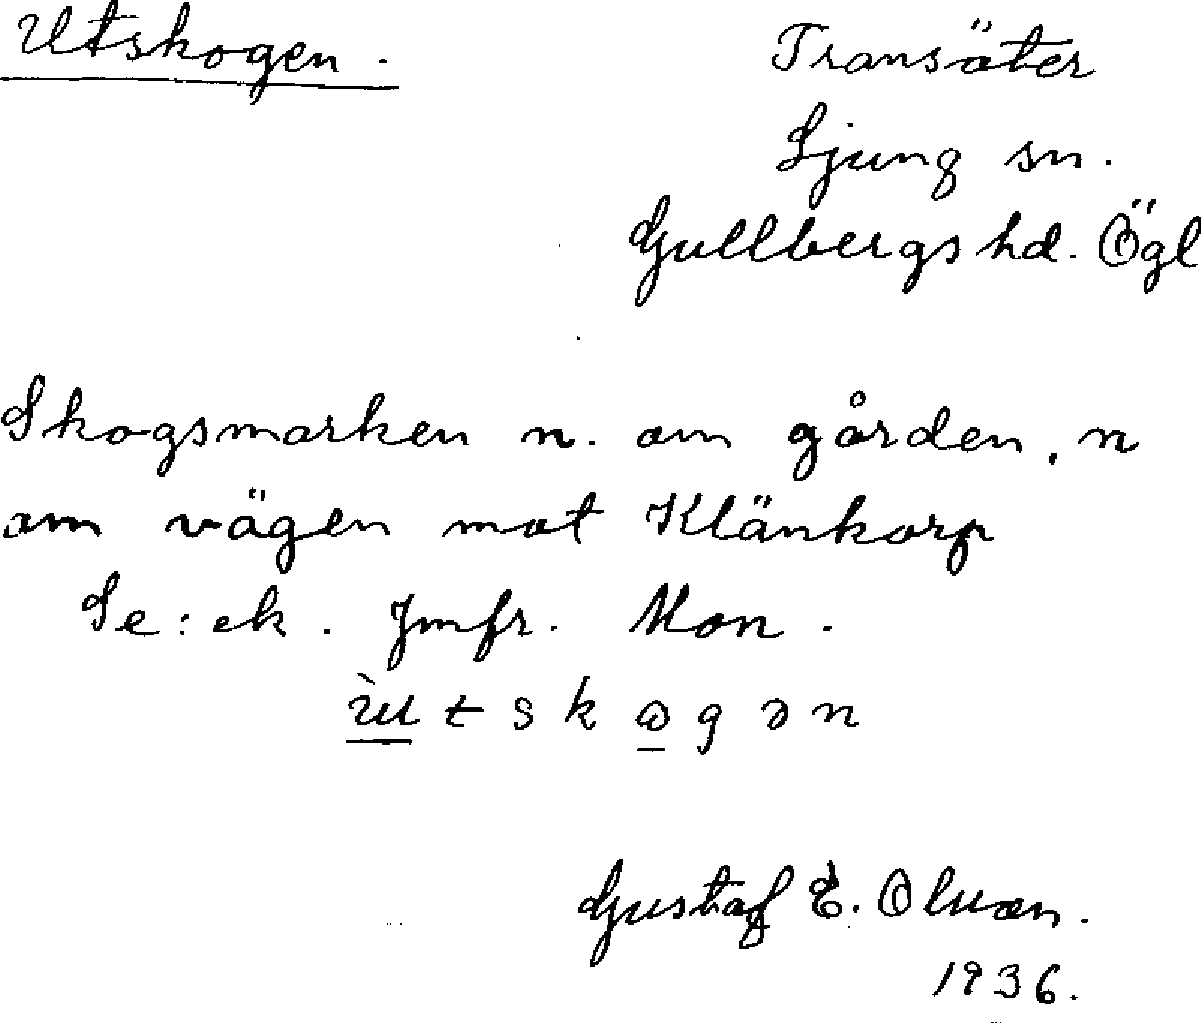 Utskogen.
Transäter
Ljung sn.
Gullbergs hd. Ögl
Skogsmarken n. om gården, n
om vägen mot Klänkorp
Se: ek. Jmfr. Mon.
ùt s k o g ə n
Gustaf E. Olsson.
1936.